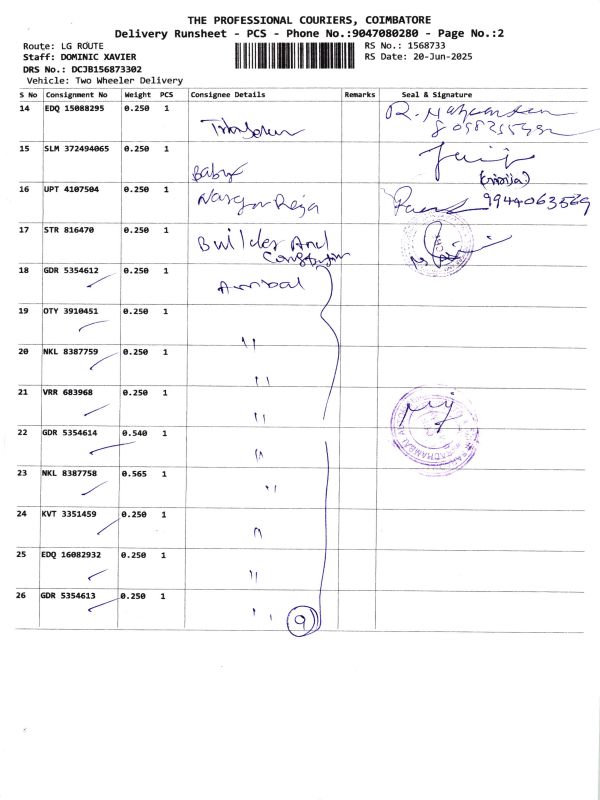 THE PROFESSIONAL COURIERS, COIMBATORE
Delivery Runsheet - PCS - Phone No.:9047080280 - Page No.:2
Route: LG ROUTE RS No.: 1568733
Staff: DOMINIC XAVIER RS Date: 20-Jun-2025
DRS No.: DCJB156873302
Vehicle: Two Wheeler Delivery
S No Consignment No Weight PCS Consignee Details Remarks Seal & Signature
14 EDQ 15088295 0.250 1
15 SLM 372494065 0.250 1 Babu
16 UPT 4107504 0.250 1 9944063569
17 STR 816470 0.250 1 Builder And
18 GDR 5354612 0.250 1
19 OTY 3910451 0.250 1 "
20 NKL 8387759 0.250 1 "
21 VRR 683968 0.250 1 "
22 GDR 5354614 0.540 1 "
23 NKL 8387758 0.565 1 "
24 KVT 3351459 0.250 1 "
25 EDQ 16082932 0.250 1 "
26 GDR 5354613 0.250 1 " 9